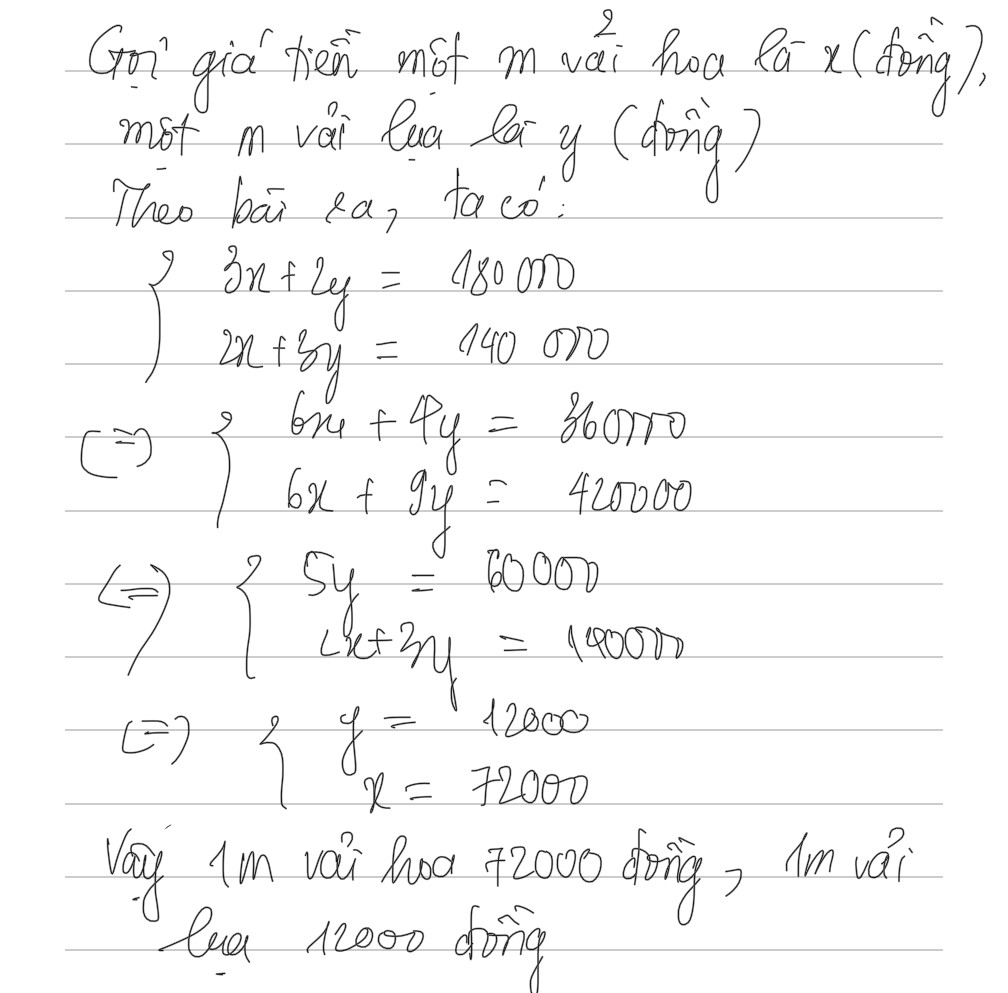 Gọi giá tiền một m vải hoa là x (đồng),
một m vải lụa là y (đồng)
Theo bài ra, ta có:
{ 3x + 2y = 180 000
2x + 3y = 140 000
(=) { 6x + 4y = 360000
6x + 9y = 420000
<=> { 5y = 60000
2x + 3y = 140000
(=) { y = 12000
x = 72000
Vậy 1m vải hoa 72000 đồng, 1m vải
lụa 12000 đồng